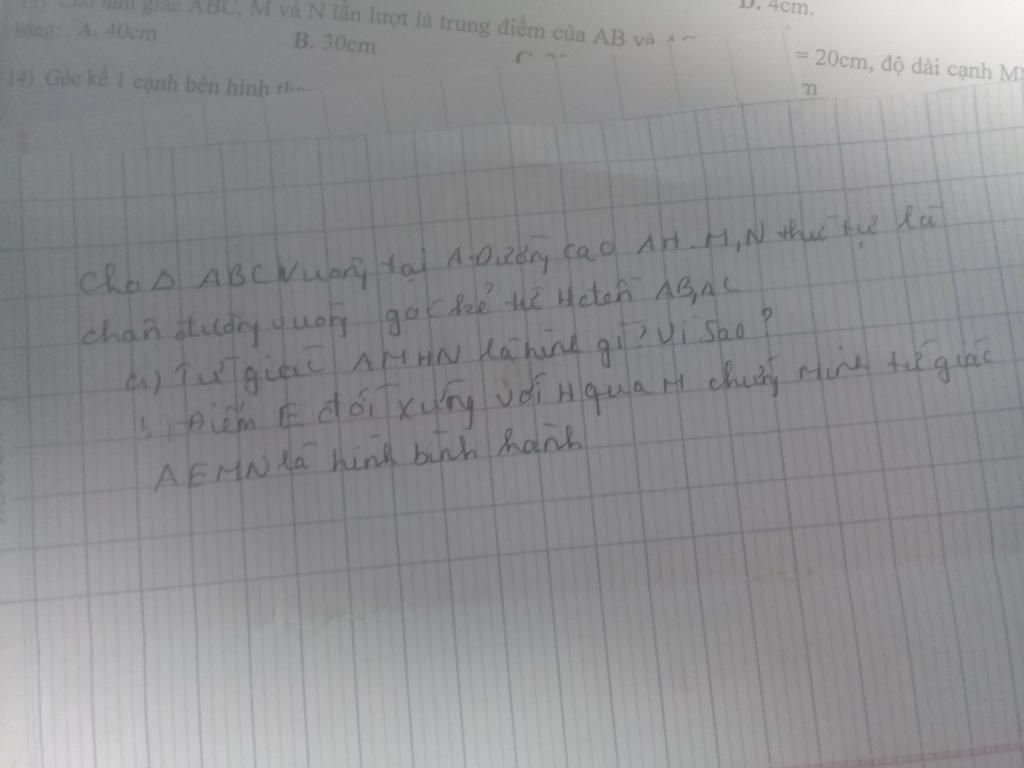 13) Cho tam giác ABC, M và N lần lượt là trung điểm của AB và
D. 4cm.
bằng: A. 40cm
B. 30cm
= 20cm, độ dài cạnh
14) Góc kề 1 cạnh bên hình
Cho Δ ABC Vuông tại A. Đường cao AH. M, N thứ tự là
chân đường vuông góc kẻ từ H đến AB, AC
a) Tứ giác AMHN là hình gì? Vì Sao?
b) Điểm E đối xứng với H qua M chứng Minh tứ giác
AEMN là hình bình hành